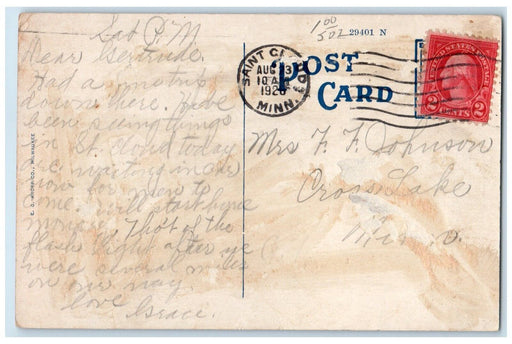 Sat P.M
Dear Gertrude.
Had a nice trip
down here. Have
been seeing things
in St. Cloud today
are waiting in car
now for men to
come. will start home
Thot of the
flash light after we
were several miles
on our way.
Love
Grace.
E. C. KROPP CO., MILWAUKEE
1 00
502
29401 N
POST
CARD
SAINT CLOUD
AUG
10 A
MINN.
UNITED STATES POSTAGE
2 CENTS 2
Mrs F. F. Johnson
Cross Lake
Minn.